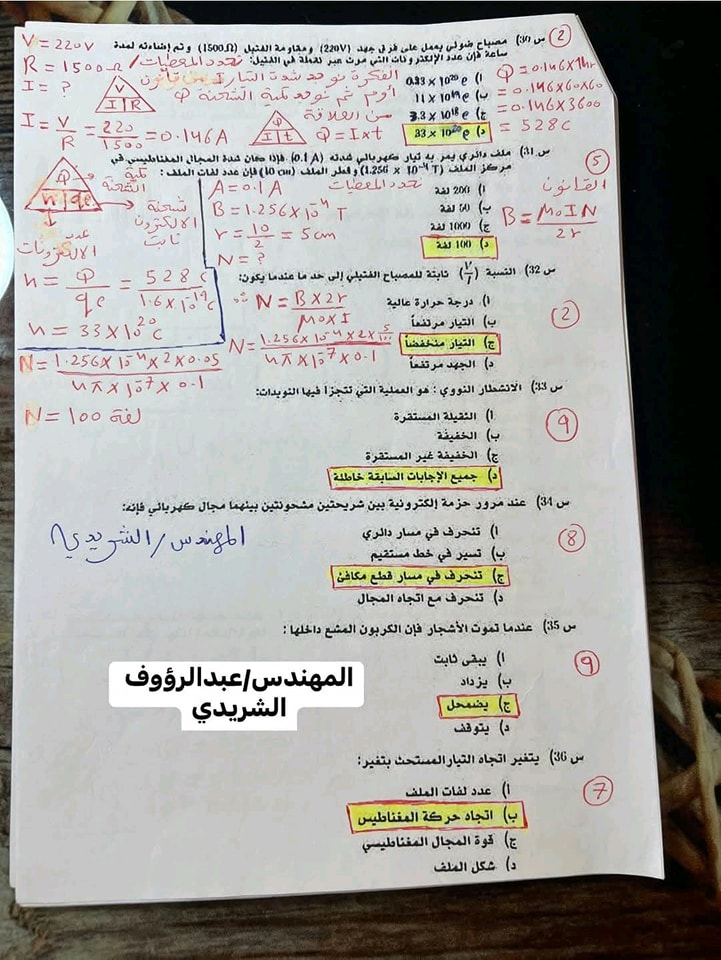 س 30) مصباح ضوئي يعمل على فرق جهد (220V) ومقاومة الفتيل (1500Ω) وتم إضاءته لمدة
ساعة فإن عدد الإلكترونات التي مرت عبر نقطة في الفتيل:
أ) 0.33 x 10²⁰ e
ب) 11 x 10¹⁹ e
ج) 3.3 x 10¹⁸ e
د) 33 x 10²⁰ e
2
V = 220V
R = 1500Ω / نحدد المعطيات
I = ?
V
I R
الفكرة نوجد شدة التيار I من قانون
أوم ثم نوجد كمية الشحنة Q
من العلاقة
Q
I t
Q = I x t
I = V/R = 220/1500 = 0.146 A
Q = 0.146 x 1hr
= 0.146 x 60 x 60
= 0.146 x 3600
= 528 c
Q
n qe
كمية الشحنة
شحنة الإلكترون ثابت
عدد الالكترونات
n = Q/qe = 528 c / 1.6 x 10⁻¹⁹ c
n = 33 x 10²⁰ c
س 31) ملف دائري يمر به تيار كهربائي شدته (0.1 A) فإذا كان شدة المجال المغناطيسي في
مركز الملف (1.256 x 10⁻⁴ T) وقطر الملف (10 cm) فإن عدد لفات الملف:
أ) 200 لفة
ب) 50 لفة
ج) 1000 لفة
د) 100 لفة
5
نحدد المعطيات
A = 0.1 A
B = 1.256 x 10⁻⁴ T
r = 10/2 = 5 cm
N = ?
القانون
B = M₀ I N / 2r
N = B x 2r / M₀ x I
N = 1.256 x 10⁻⁴ x 2 x 5/100 / 4π x 10⁻⁷ x 0.1
N = 1.256 x 10⁻⁴ x 2 x 0.05 / 4π x 10⁻⁷ x 0.1
N = 100 لفة
س 32) النسبة (V/I) ثابتة للمصباح الفتيلي إلى حد ما عندما يكون:
أ) درجة حرارة عالية
ب) التيار مرتفعاً
ج) التيار منخفضاً
د) الجهد مرتفعاً
2
س 33) الانشطار النووي: هو العملية التي تتجزأ فيها النويدات:
أ) الثقيلة المستقرة
ب) الخفيفة
ج) الخفيفة غير المستقرة
د) جميع الإجابات السابقة خاطئة
9
س 34) عند مرور حزمة إلكترونية بين شريحتين مشحونتين بينهما مجال كهربائي فإنه:
أ) تنحرف في مسار دائري
ب) تسير في خط مستقيم
ج) تنحرف في مسار قطع مكافئ
د) تنحرف مع اتجاه المجال
8
المهندس/الشريدي
س 35) عندما تموت الأشجار فإن الكربون المشع داخلها:
أ) يبقى ثابت
ب) يزداد
ج) يضمحل
د) يتوقف
9
المهندس/عبدالرؤوف
الشريدي
س 36) يتغير اتجاه التيار المستحث بتغير:
أ) عدد لفات الملف
ب) اتجاه حركة المغناطيس
ج) قوة المجال المغناطيسي
د) شكل الملف
7